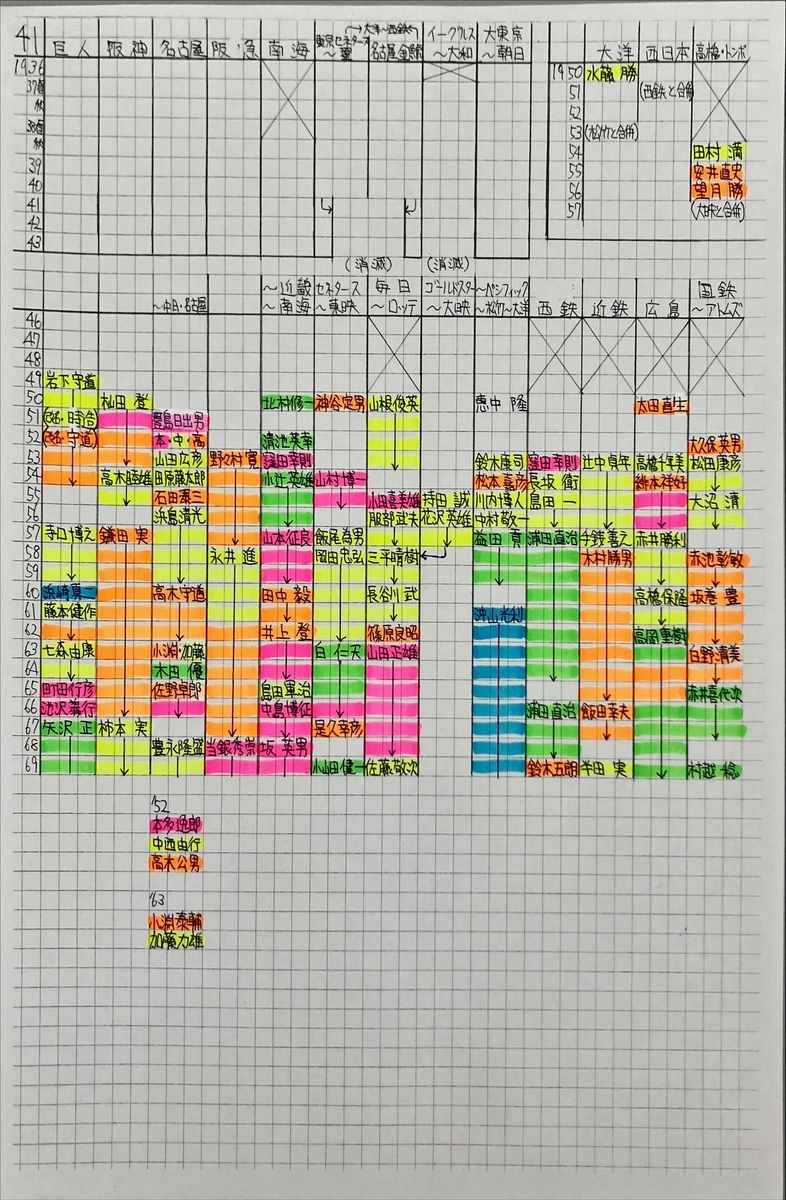 41 巨人 阪神 名古屋 阪急 南海 東京セネタース 〜翼 大洋〜西鉄 名古屋金鯱 イーグルス 〜大和 大東京 〜朝日 大洋 西日本 高橋・トンボ
1936 1950 水藤 勝
37春 51 (西鉄と合併)
秋 52
38春 53 (松竹と合併)
秋 54 田村 満
39 55 安井直史
40 56 望月 勝
41 57 (大映と合併)
42
43
(消滅) (消滅)
〜中日・名古屋 〜近畿 〜南海 セネタース 〜東映 毎日 〜ロッテ ゴールドスター 〜大映 〜パシフィック 〜松竹〜大洋 西鉄 近鉄 広島 国鉄 〜アトムズ
46
47
48
49 岩下守道
50 杣田 登 北村修一 神谷定男 山根俊英 恵中 隆 太田直生
51 豊島日出男
52 (改名・守道) 本・中・高 清池英幸 大久保英男
53 山田広彦 野々村寛 窪田幸則 鈴木康司 窪田幸則 辻中貞年 高橋千年美 松田康彦
54 高木睦雄 田原藤太郎 小辻英雄 山村博一 松本嘉彦 長坂 衛 緋本祥好
55 石田憲三 小田喜美雄 持田 誠 川内博人 島田 一 大沼 清
56 浜島清光 服部武夫 花沢英雄 中村敬一
57 寺口博之 鎌田 実 山本征良 飯尾為男 益田 真 浦田直治 手銭善之 赤井勝利
58 永井 進 岡田忠弘 三平晴樹 木村勝男 赤池彰敏
59
60 浜崎寛一 高木守道 田中 毅 長谷川 武 高橋保隆 坂巻 豊
61 藤本健作 沖山光利
62 井上 登 篠原良昭 高岡重樹
63 七森由康 小渕・加藤 白 仁天 山田正雄 白野清美
64 木田 優
65 町田行彦 佐野卓郎 島田軍治 赤井喜代次
66 池沢義行 中島博征 浦田直治 飯田幸夫
67 矢沢 正 柿本 実 是久幸彦
68 豊永隆盛 当銀秀崇 坂 英男
69 小山田健一 佐藤敬次 鈴木五朗 半田 実 村越 稔
'52
本多逸郎
中西由行
高木公男
'63
小渕泰輔
加藤力雄